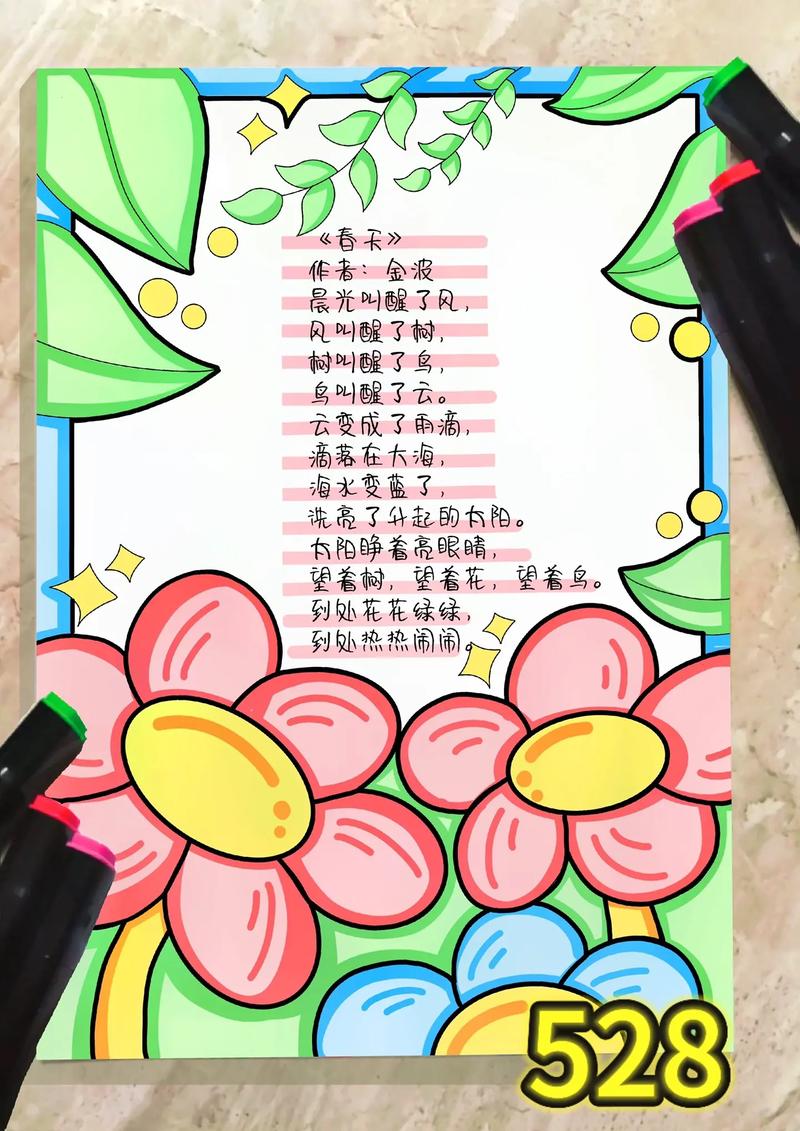 《春天》
作者：金波
晨光叫醒了风，
风叫醒了树，
树叫醒了鸟，
鸟叫醒了云。
云变成了雨滴，
滴落在大海，
海水变蓝了，
洗亮了升起的太阳。
太阳睁着亮眼睛，
望着树，望着花，望着鸟。
到处花花绿绿，
到处热热闹闹。
528